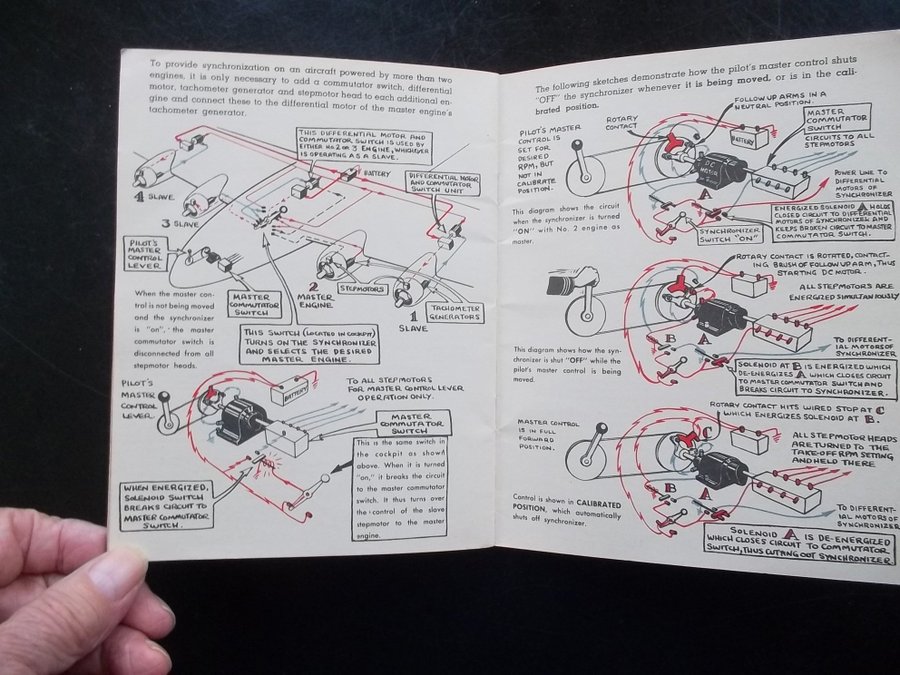 To provide synchronization on an aircraft powered by more than two
engines, it is only necessary to add a commutator switch, differential
motor, tachometer generator and stepmotor head to each additional en-
gine and connect these to the differential motor of the master engine's
tachometer generator.
THIS DIFFERENTIAL MOTOR AND
COMMUTATOR SWITCH IS USED BY
EITHER No. 2 OR 3 ENGINE, WHICHEVER
IS OPERATING AS A SLAVE.
BATTERY
DIFFERENTIAL MOTOR
AND COMMUTATOR
SWITCH UNIT
4 SLAVE
3 SLAVE
PILOT'S
MASTER
CONTROL
LEVER
MASTER
COMMUTATOR
SWITCH
2
MASTER
ENGINE
STEPMOTORS
1
SLAVE
TACHOMETER
GENERATORS
When the master con-
trol is not being moved
and the synchronizer
is "on", the master
commutator switch is
disconnected from all
stepmotor heads.
THIS SWITCH (LOCATED IN COCKPIT)
TURNS ON THE SYNCHRONIZER
AND SELECTS THE DESIRED
MASTER ENGINE.
PILOT'S
MASTER
CONTROL
LEVER.
BATTERY
TO ALL STEPMOTORS
FOR MASTER CONTROL LEVER
OPERATION ONLY.
MASTER
COMMUTATOR
SWITCH
This is the same switch in
the cockpit as shown
above. When it is turned
"on," it breaks the circuit
to the master commutator
switch. It thus turns over
the control of the slave
stepmotor to the master
engine.
WHEN ENERGIZED,
SOLENOID SWITCH
BREAKS CIRCUIT TO
MASTER COMMUTATOR
SWITCH.
The following sketches demonstrate how the pilot's master control shuts
"OFF" the synchronizer whenever it is being moved, or is in the cali-
brated position.
FOLLOW UP ARMS IN A
NEUTRAL POSITION.
ROTARY
CONTACT
PILOT'S MASTER
CONTROL IS
SET FOR
DESIRED
RPM, BUT
NOT IN
CALIBRATE
POSITION.
BATTERY
MASTER
COMMUTATOR
SWITCH
CIRCUITS TO ALL
STEPMOTORS
DC
MOTOR
POWER LINE TO
DIFFERENTIAL
MOTORS OF
SYNCHRONIZER
A
This diagram shows the circuit
when the synchronizer is turned
"ON" with No. 2 engine as
master.
SYNCHRONIZER
SWITCH "ON"
ENERGIZED SOLENOID A HOLDS
CLOSED CIRCUIT TO DIFFERENTIAL
MOTORS OF SYNCHRONIZER AND
KEEPS BROKEN CIRCUIT TO MASTER
COMMUTATOR SWITCH.
ROTARY CONTACT IS ROTATED, CONTACT-
ING BRUSH OF FOLLOW UP ARM, THUS
STARTING DC MOTOR.
ALL STEPMOTORS ARE
ENERGIZED SIMULTANIOUSLY
B
A
TO DIFFERENT-
IAL MOTORS OF
SYNCHRONIZER
This diagram shows how the syn-
chronizer is shut "OFF" while the
pilot's master control is being
moved.
SOLENOID AT B IS ENERGIZED WHICH
DE-ENERGIZES A WHICH CLOSES CIRCUIT
TO MASTER COMMUTATOR SWITCH AND
BREAKS CIRCUIT TO SYNCHRONIZER.
ROTARY CONTACT HITS WIRED STOP AT C
WHICH ENERGIZES SOLENOID AT B.
MASTER CONTROL
IS IN FULL
FORWARD
POSITION.
C
ALL STEPMOTOR HEADS
ARE RETURNED TO THE
TAKE-OFF RPM SETTING
AND HELD THERE
B
A
Control is shown in CALIBRATED
POSITION, which automatically
shuts off synchronizer.
TO DIFFERENT-
IAL MOTORS OF
SYNCHRONIZER
SOLENOID A IS DE-ENERGIZED
WHICH CLOSES CIRCUIT TO COMMUTATOR
SWITCH, THUS CUTTING OUT SYNCHRONIZER